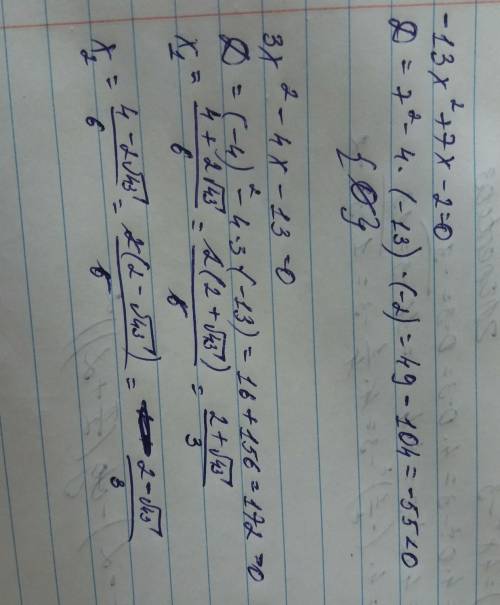 -13x² + 7x - 2 = 0
D = 7² - 4 · (-13) · (-2) = 49 - 104 = -55 < 0
{Ø}
3x² - 4x - 13 = 0
D = (-4)² - 4·3·(-13) = 16 + 156 = 172 > 0
x₁ = (4 + 2√43)/6 = 2(2 + √43)/6 = (2 + √43)/3
x₂ = (4 - 2√43)/6 = 2(2 - √43)/6 = (2 - √43)/3